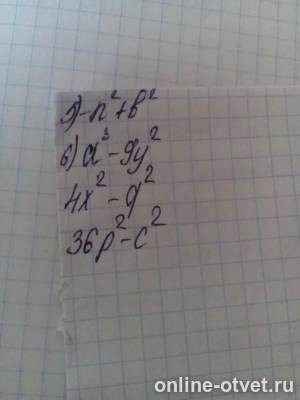 5) -n²+b²
6) a³-9y²
4x²-q²
36p²-c²
online-otvet.ru